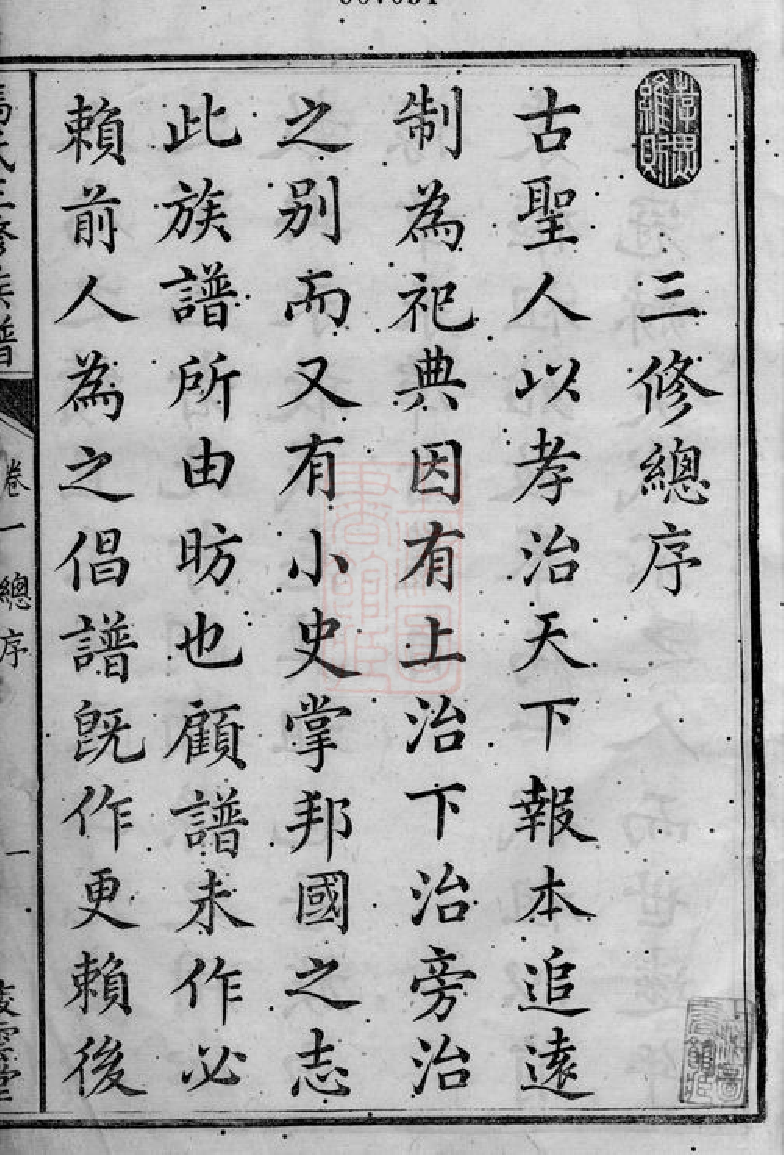 三修總序
古聖人以孝治天下報本追遠
制為祀典因有上治下治旁治
之别而又有小史掌邦國之志
此族譜所由昉也顧譜未作必
賴前人為之倡譜既作更賴後
氏三修族譜
卷一總序
一
雲堂